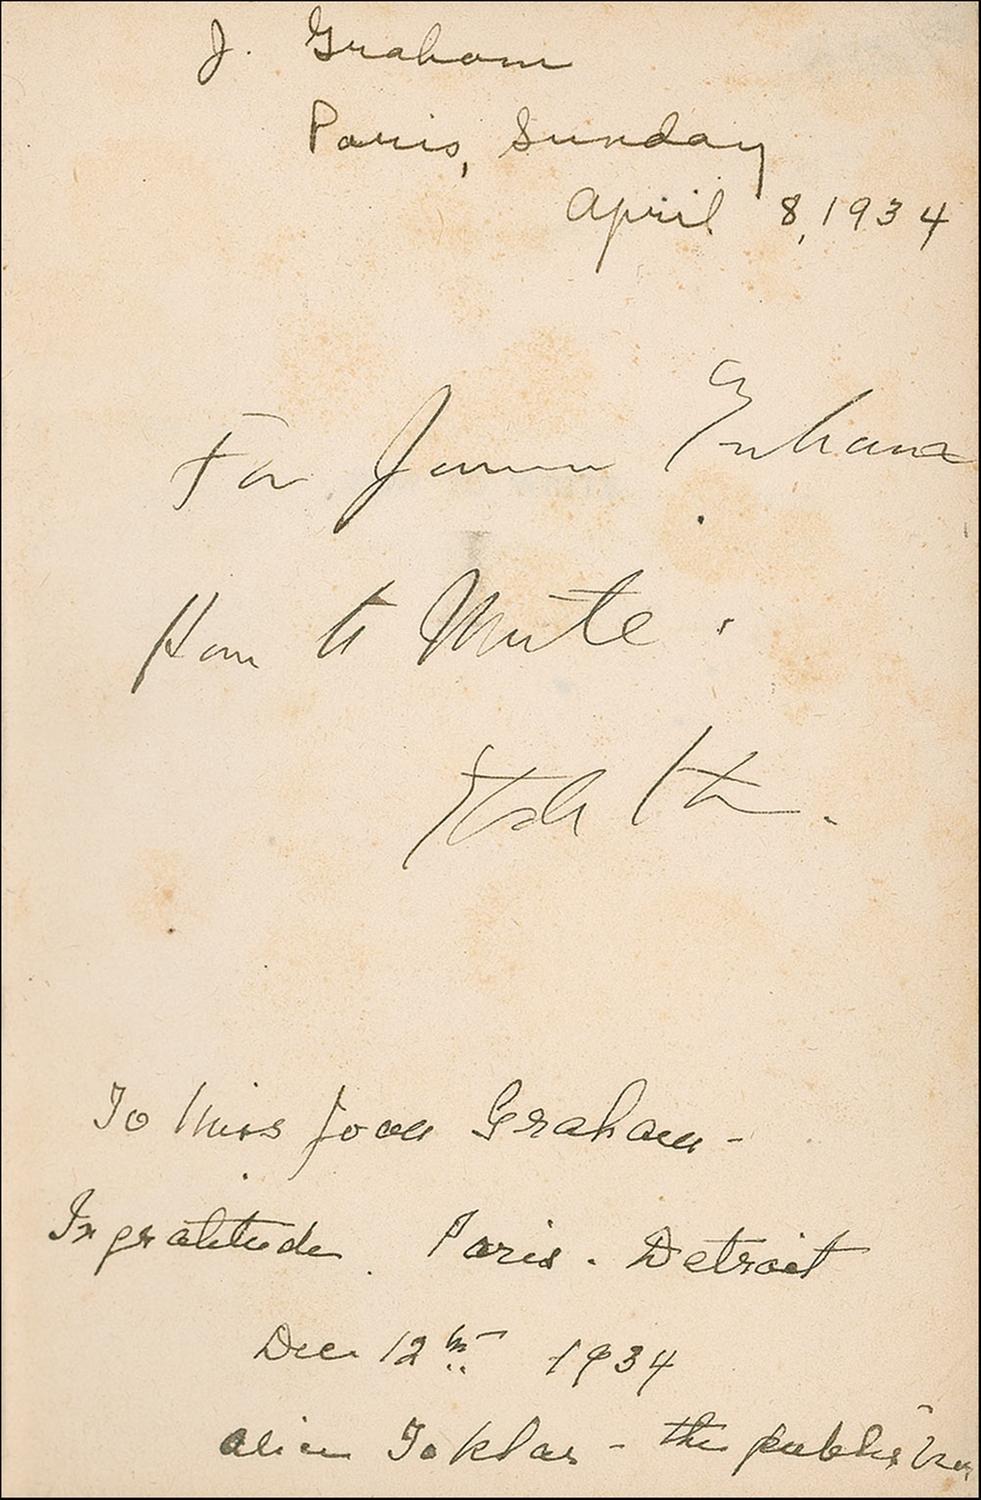 J. Graham
Paris, Sunday
April 8, 1934
For Joan Graham
How to Write.
Gtde Stn.
To Miss Joan Graham -
In gratitude. Paris. Detroit
Dec 12th 1934
Alice Toklas - the publisher